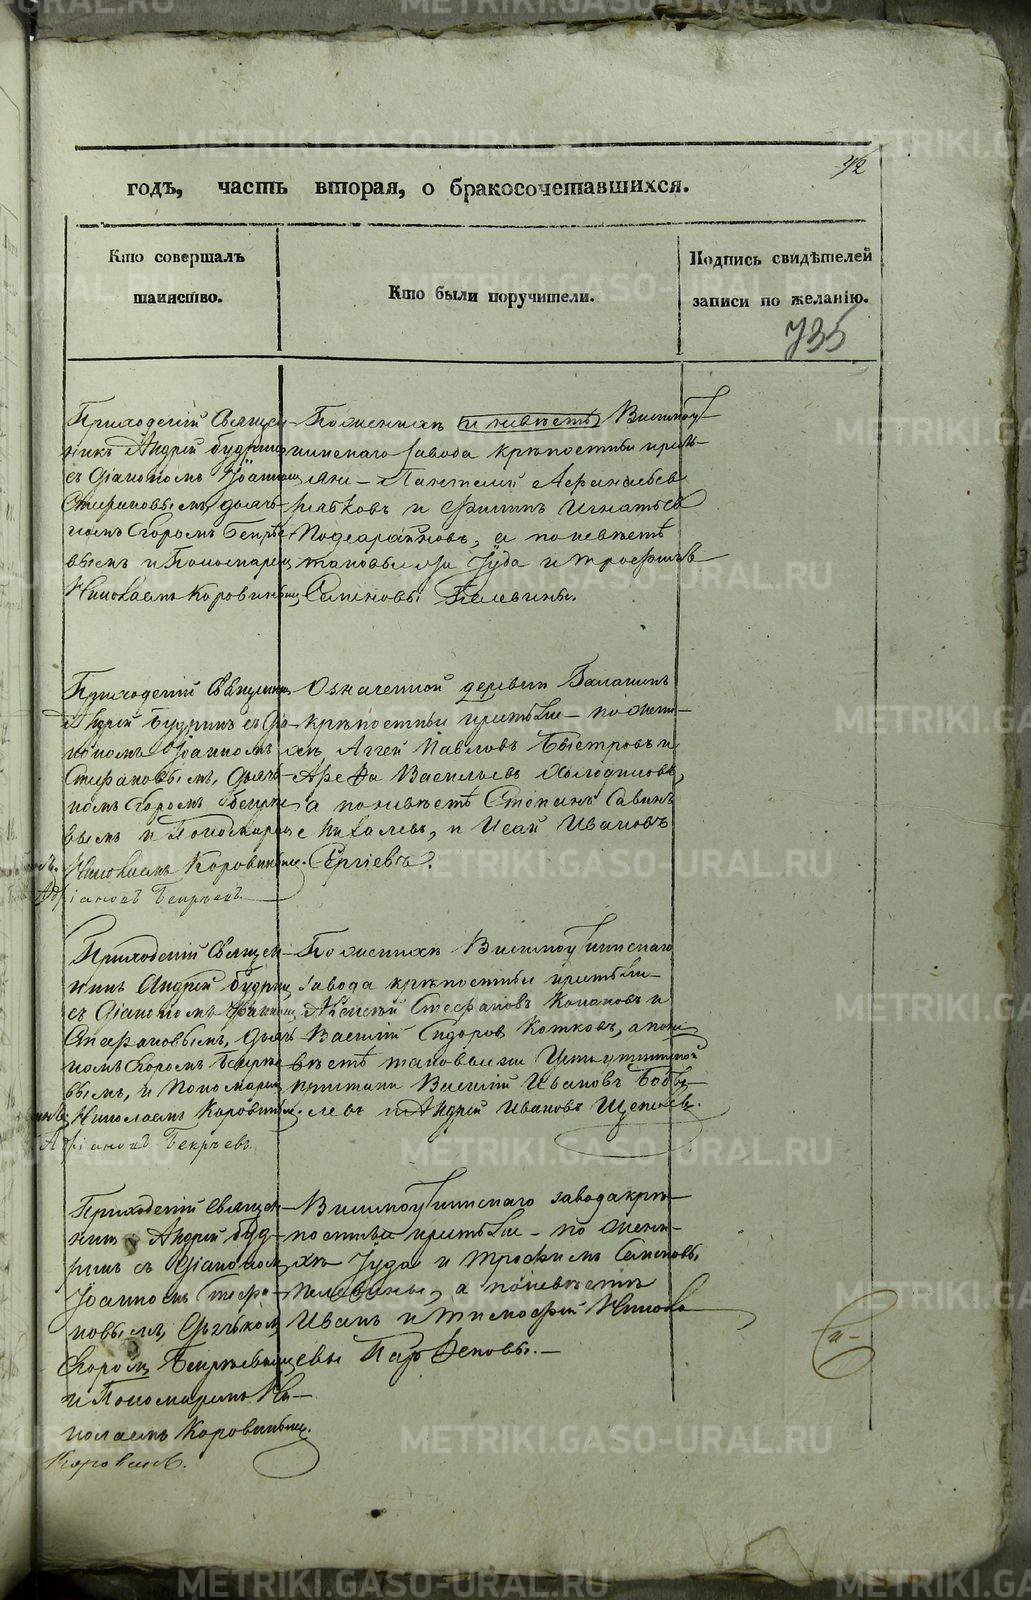 42
годъ, часть вторая, о бракосочетавшихся.
Кто совершалъ таинство.
Кто были поручители.
Подпись свидѣтелей записи по желанію.
735
Приходскій Священ-
никъ Андрей Будринъ
съ Діакономъ Іоанномъ
Стефановымъ, дьяч-
комъ Егоромъ
вымъ и Пономаремъ
Николаемъ Коровинымъ
По женихѣ и невѣстѣ Висимоут-
кинскаго завода крѣпостныи крестья-
не – Пантелей Афанасьевъ
и Филипъ Игнатьевъ
а по невѣстѣ
таковыежъ Іуда и Трофимъ
Семеновы Пелевины.
Приходскій Священникъ
Андрей Будринъ съ Діа-
кономъ Іоанномъ
Стефановымъ, Дьяч-
комъ Егоромъ
вымъ и Пономаремъ
Николаемъ Коровинымъ.
Бекрѣевъ
Означенной деревни Галашинъ
крѣпостныи крестьяне – по жени-
хѣ Аггей Павловъ Быстровъ и
Арефа Васильевъ
а по невѣстѣ Степанъ Савинъ
и Исай Ивановъ
Сергіевъ.
Приходскій Священ-
никъ Андрей Будринъ
съ Діакономъ Іоанномъ
Стефановымъ, Дьяч-
комъ Егоромъ Бекрѣе-
вымъ, и Пономаремъ
Николаемъ Коровинымъ.
Бекрѣевъ
По женихѣ Висимоуткинскаго
завода крѣпостныи крестьяне
Алексѣй Стефановъ Конановъ и
Василій Сидоровъ Котковъ, а по не-
вѣстѣ таковыежъ Усть уткинской
пристани Василій Ивановъ
и Андрей Ивановъ
Приходскій Священ-
никъ Андрей Буд-
ринъ съ Діакономъ
Іоанномъ Стефа-
новымъ, Дьячкомъ
Егоромъ Бекрѣевымъ
и Пономаремъ Ни-
колаемъ Коровинымъ.
Коровинъ.
Висимоуткинскаго завода крѣ-
постныи крестьяне – по жени-
хѣ Іуда и Трофимъ Семеновы
Пелевины, а по невѣстѣ
Иванъ и Тимофей Никола-
евы Парфеновы. –
METRIKI.GASO-URAL.RU